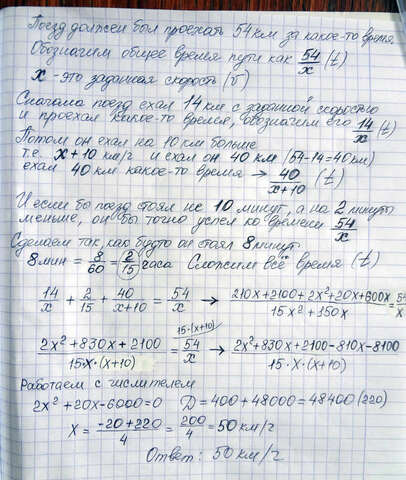 Поезд должен был проехать 54 км за какое-то время
Обозначим общее время пути как 54/x (t)
x - это заданная скорость (v)
Сначала поезд ехал 14 км с заданной скоростью
и проехал какое-то время, обозначим его 14/x (t)
Потом он ехал на 10 км больше
т.е. x+10 км/ч и ехал он 40 км (54-14=40км)
ехал 40 км какое-то время → 40/x+10 (t)
И если бы поезд стоял не 10 минут, а на 2 минуты
меньше, он бы точно успел ко времени 54/x
Сделаем так, как будто он стоял 8 минут
8 мин = 8/60 = 2/15 часа Сложим всё время (t)
14/x + 2/15 + 40/x+10 = 54/x → 210x+2100+2x²+20x+600x/15x²+150x = 54
2x²+830x+2100/15·x·(x+10) = 15·(x+10) 54/x → 2x²+830x+2100-810x-8100/15·x·(x+10)
Работаем с числителем
2x²+20x-6000=0 D=400+48000=48400 (220)
x = -20+220/4 = 200/4 = 50 км/ч
Ответ: 50 км/ч